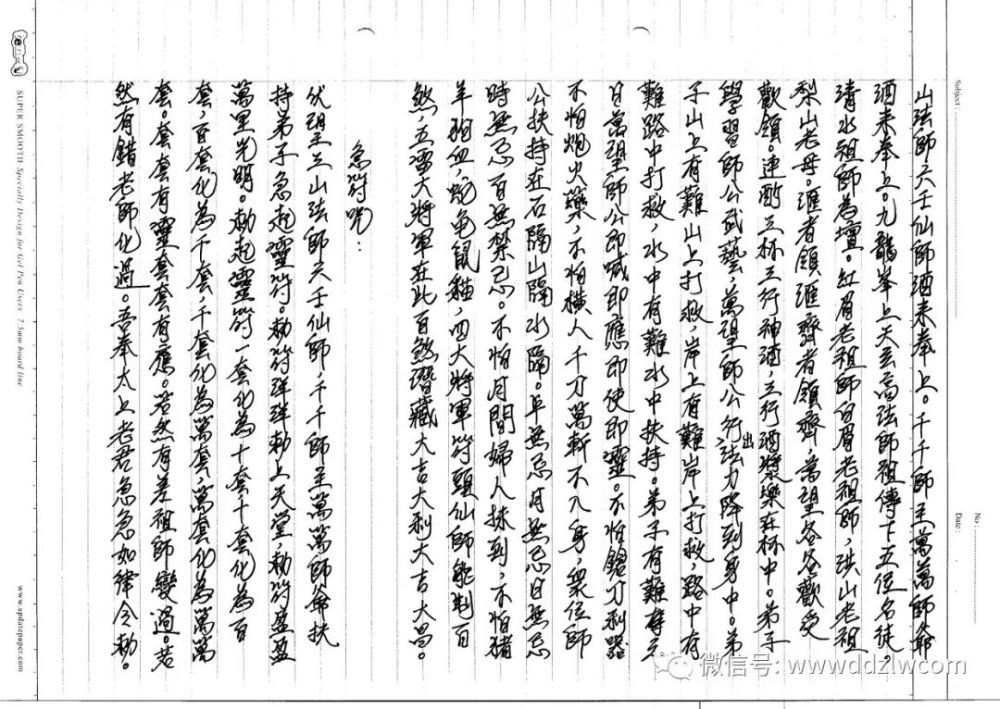 山法師六壬仙師酒來奉上。千千師主萬萬師爺
酒來奉上。九龍峯上天玄高法師祖傳下五位名徒
清水祖師為壇。紅眉老祖師白眉老祖師,洪山老祖
梨山老母。滙者領滙齊者領齊,當望各各歡受
歡領。連酌三杯三行神酒,三行酒漿樂在杯中。弟子
學習師公武藝,萬望師公行出法力降到身中。弟
子山上有難山上打救,岸上有難岸上打救,路中有
難路中打救,水中有難水中扶持。弟子有難有
日萬望師公即喊即應即使即靈。不怕鎗刀利器
不怕炮火藥,不怕橫人千刀萬斬不入身,眾位師
公扶持在石隔山隔水隔。年無忌月無忌日無忌
時無忌百無禁忌。不怕月間婦人抹到,不怕豬
羊狗血,蛇龟鼠貓,四大將軍符頭仙師能制百
煞,五雷大將軍在此百煞潛藏大吉大利大吉大昌。
急符咒:
伏望三山法師六壬仙師,千千師主萬萬師爺扶
持弟子急起靈符。勅符洋洋勅上天堂,勅符盈盈
萬里光明。勅起靈符一套化為十套十套化為百
套,百套化為千套,千套化為萬套,萬套化為萬萬
套。套套有靈套套有應。若然有差祖師變過。若
然有錯老師化過。吾奉太上老君急急如律令勅。
Subject:
No:
Date:
SUPER SMOOTH Specially Design for Gel Pen Users. 7.5mm board line
www.updatepaper.com
微信号: wwwddzlwcom